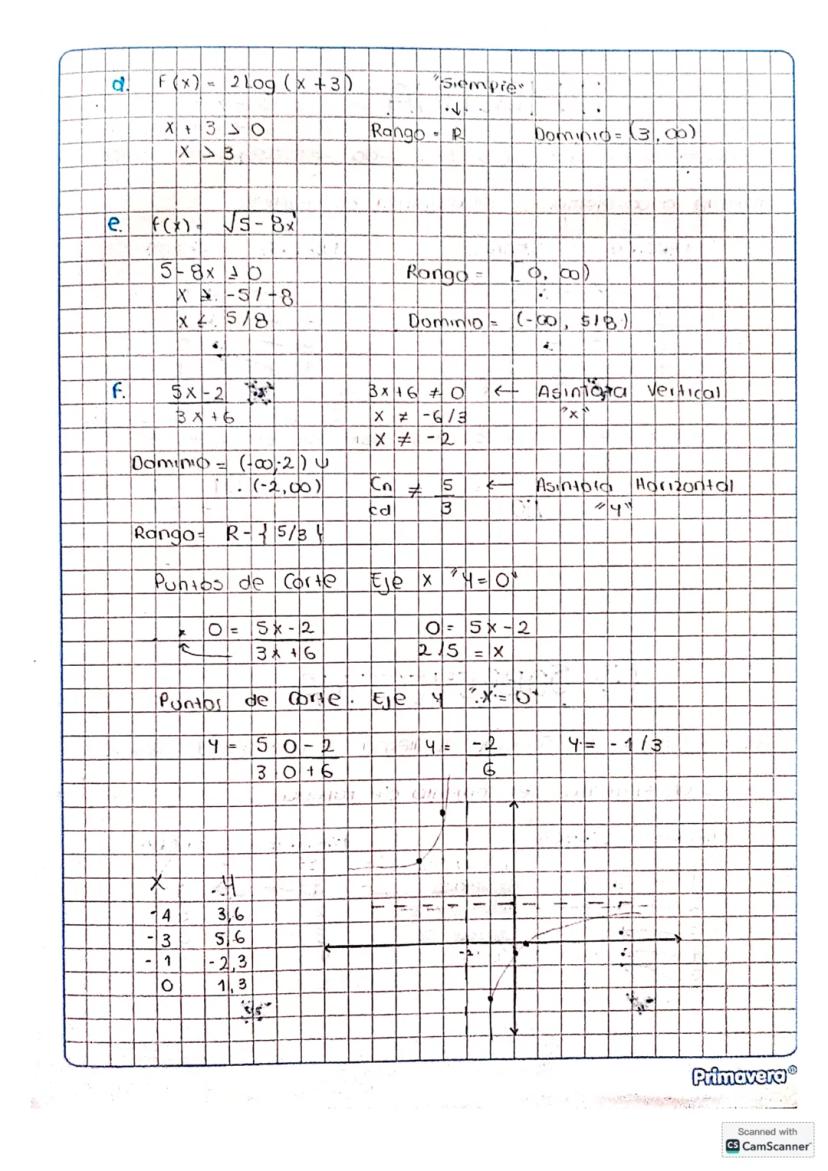 d. F(x) = 2Log (x + 3) "Siempre"
↓
x + 3 > 0 Rango = R Dominio = (3, ∞)
x > 3
e. f(x) = √5 - 8x
5 - 8x ≥ 0 Rango = [0, ∞)
x ≥ -5/-8
x ≤ 5/8 Dominio = (-∞, 5/8)
F. 5x - 2 3x + 6 ≠ 0 ← Asintota Vertical
3x + 6 x ≠ -6/3 "x"
x ≠ -2
Dominio = (-∞, -2) ∪
(-2, ∞) Cn ≠ 5 ← Asintota Horizontal
cd 3 "y"
Rango = R - { 5/3 }
Puntos de Corte Eje x "y = 0"
0 = 5x - 2 0 = 5x - 2
3x + 6 2/5 = x
Puntos de Corte. Eje y "x = 0"
y = 5 0 - 2 y = -2 y = -1/3
3 0 + 6 6
x y
-4 3,6
-3 5,6
-1 -2,3
0 1,3
-2
Primavera®
Scanned with
CS CamScanner